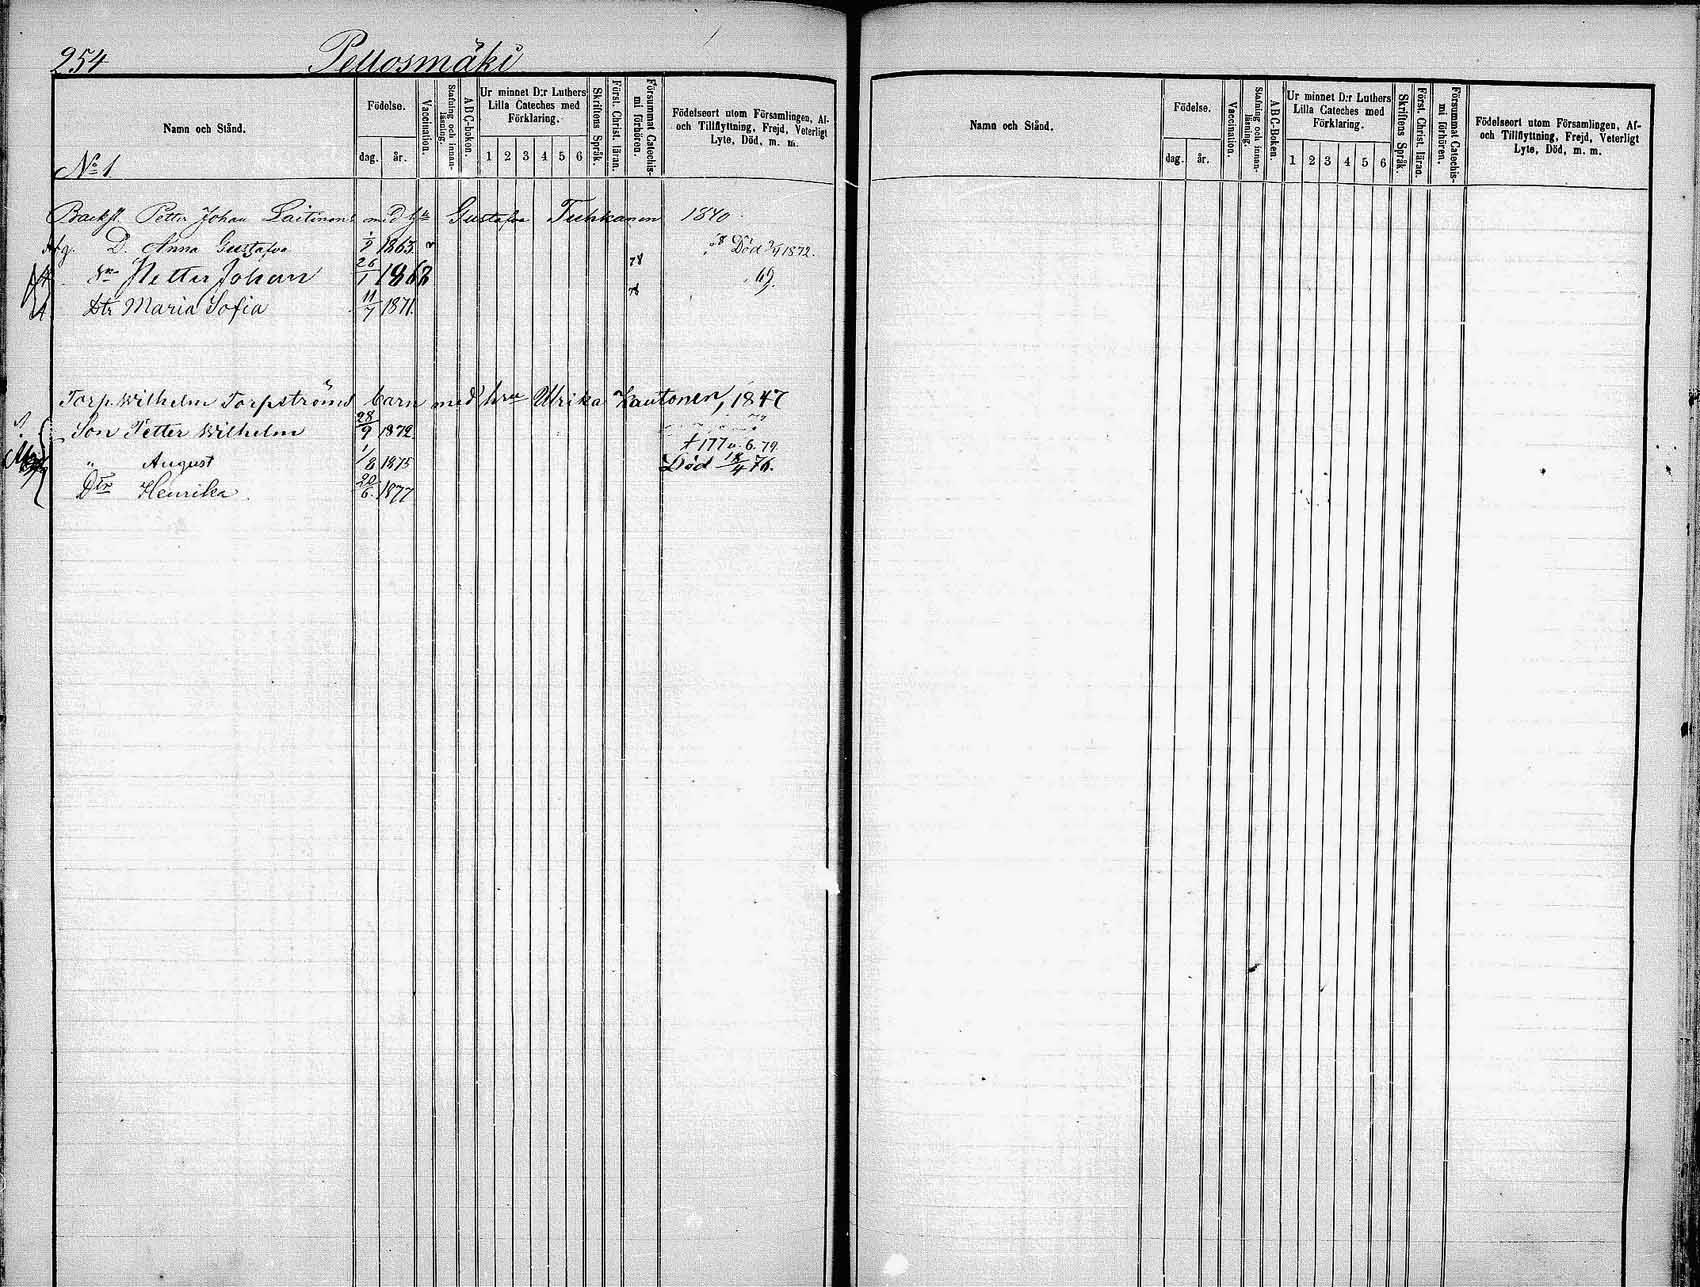 254 Pellosmäki
Namn och Stånd.
Födelse.
dag. år.
Vaccination.
Stafning och innanläsning.
ABC-boken.
Ur minnet D:r Luthers Lilla Cateches med Förklaring.
1 2 3 4 5 6
Skriftens Språk.
Först. Christ. läran.
Försummat Catechismi förhören.
Födelseort utom Församlingen, Af- och Tillflyttning, Frejd, Veterligt Lyte, Död, m. m.
Namn och Stånd.
Födelse.
dag. år.
Vaccination.
Stafning och innanläsning.
ABC-Boken.
Ur minnet D:r Luthers Lilla Cateches med Förklaring.
1 2 3 4 5 6
Skriftens Språk.
Först Christ. läran.
Försummat Catechismi förhören.
Födelseort utom Församlingen, Af- och Tillflyttning, Frejd, Veterligt Lyte, Död, m. m.
No 1
Petter Johan Laitinens med Gustafva Tuhkanen 1840
D. Anna Gustafva 1863 Död 1872.
Sn Petter Johan 26/1 1868 78 69.
Dtr Maria Sofia 11/7 1871. 78
Torp. Wilhelm Torpströms barn med hru Ulrika Lautonen, 1847
Son Petter Wilhelm 28/9 1872
" August 1/8 1875 Död 18/4 76.
Dtr Henrika. 22/6. 1877